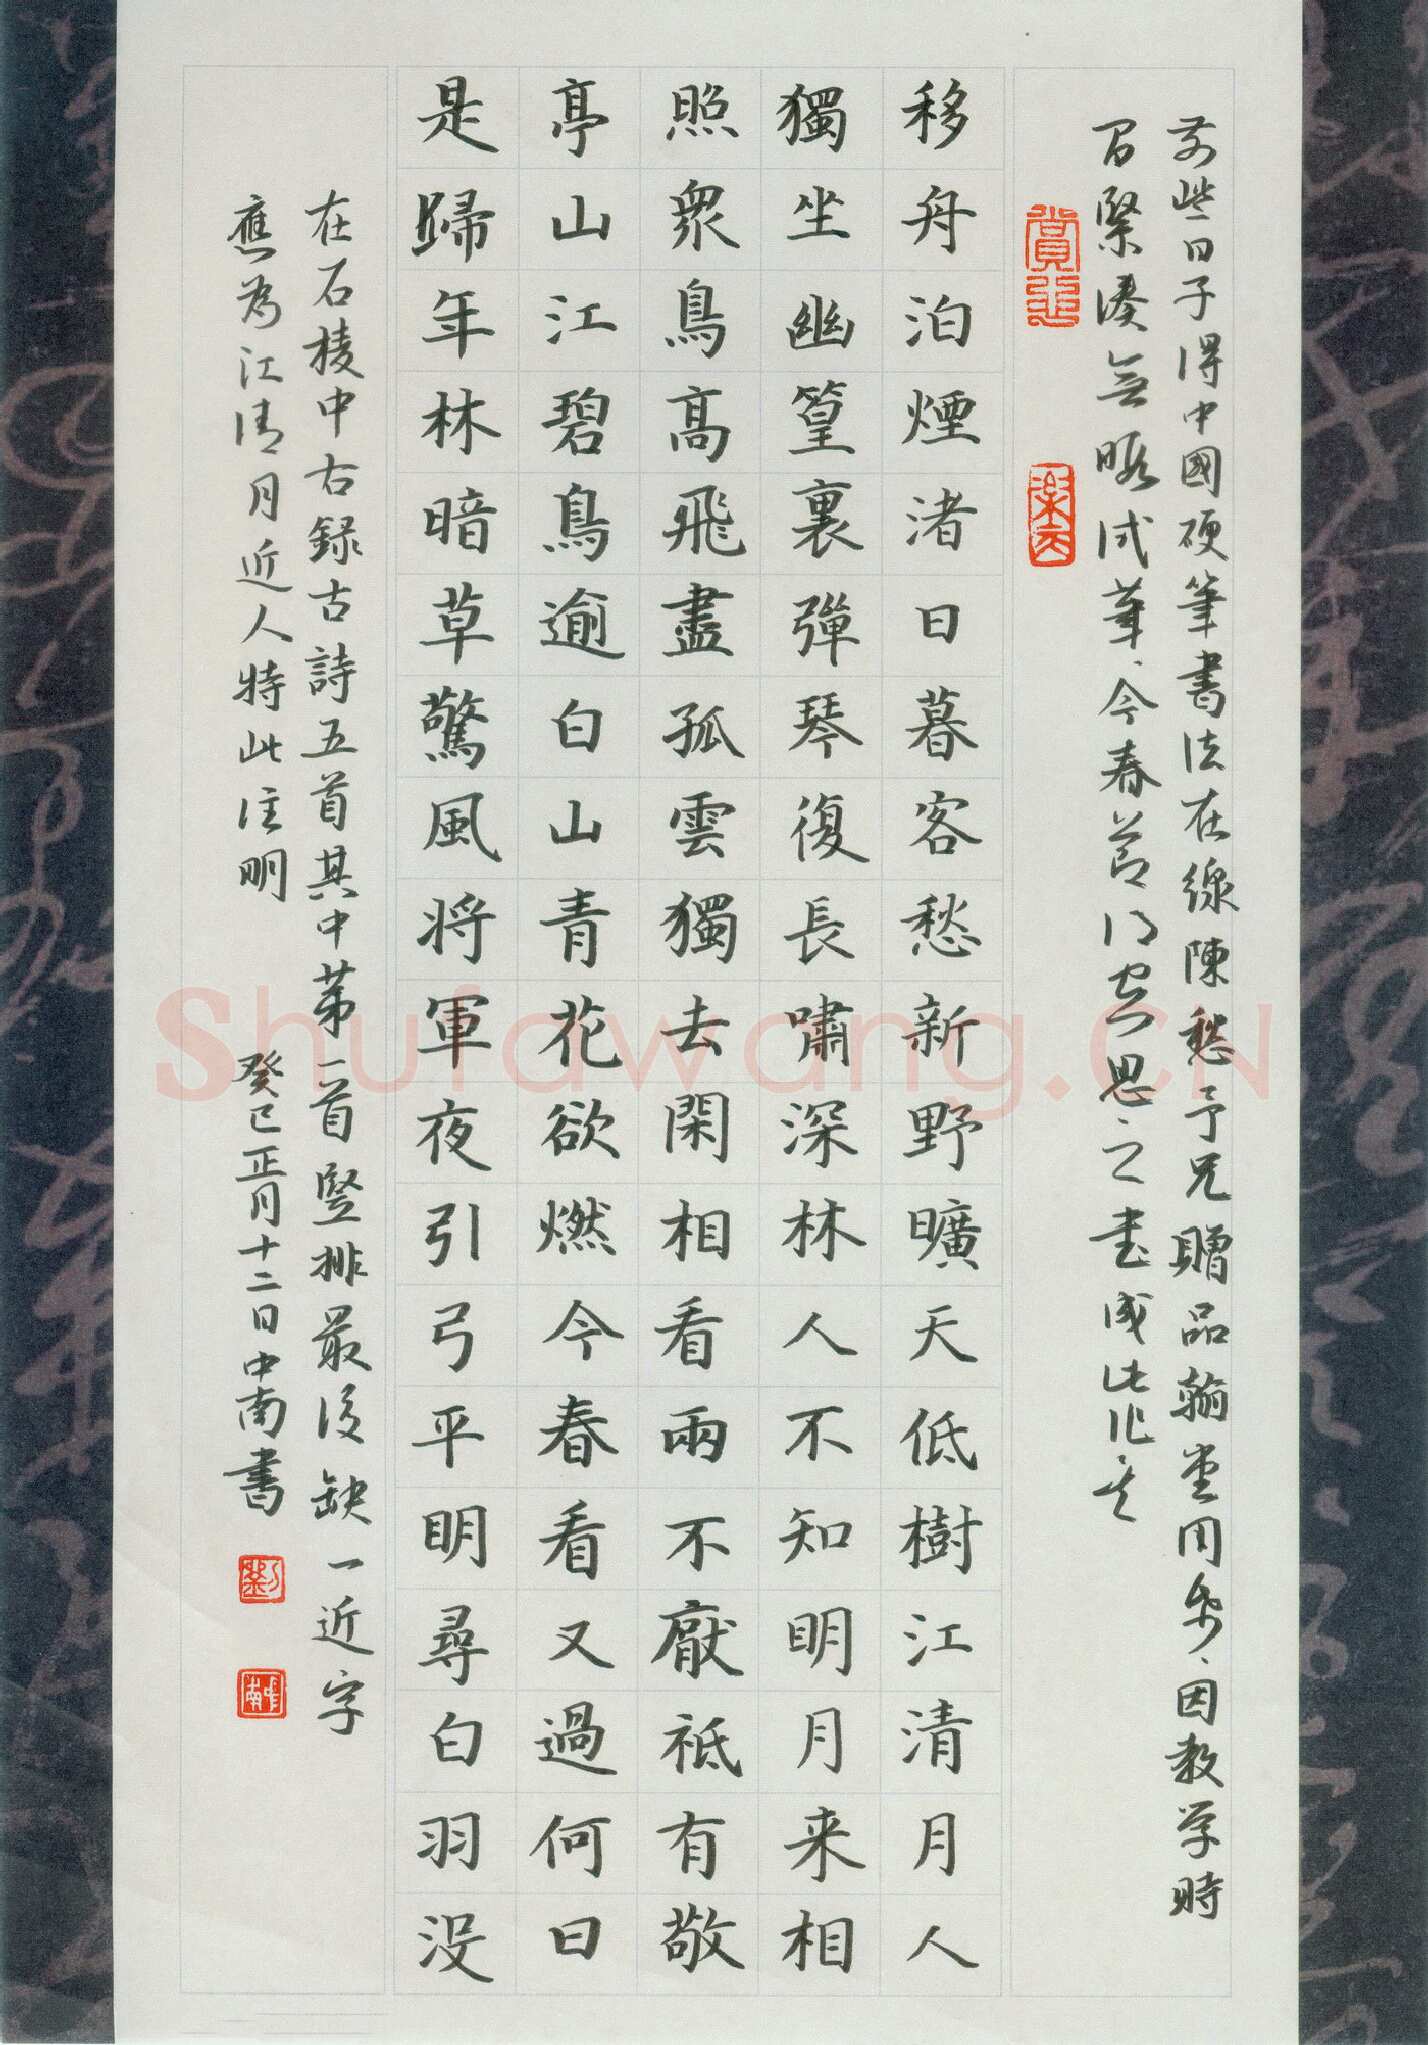 前些日子得中國硬筆書法在線陳愁予兄贈品翰堂用箋、因教学時
間緊湊無暇試筆、今春節得空思之書成此作
移舟泊煙渚日暮客愁新野曠天低樹江清月人
獨坐幽篁裏彈琴復長嘯深林人不知明月来相
照衆鳥高飛盡孤雲獨去閑相看兩不厭祗有敬
亭山江碧鳥逾白山青花欲燃今春看又過何日
是歸年林暗草驚風将軍夜引弓平明尋白羽没
在石棱中右録古詩五首其中第一首竪排最後缺一近字
應為江清月近人特此注明 癸巳正月十二日中南書
劉
中南
Shufawang.CN